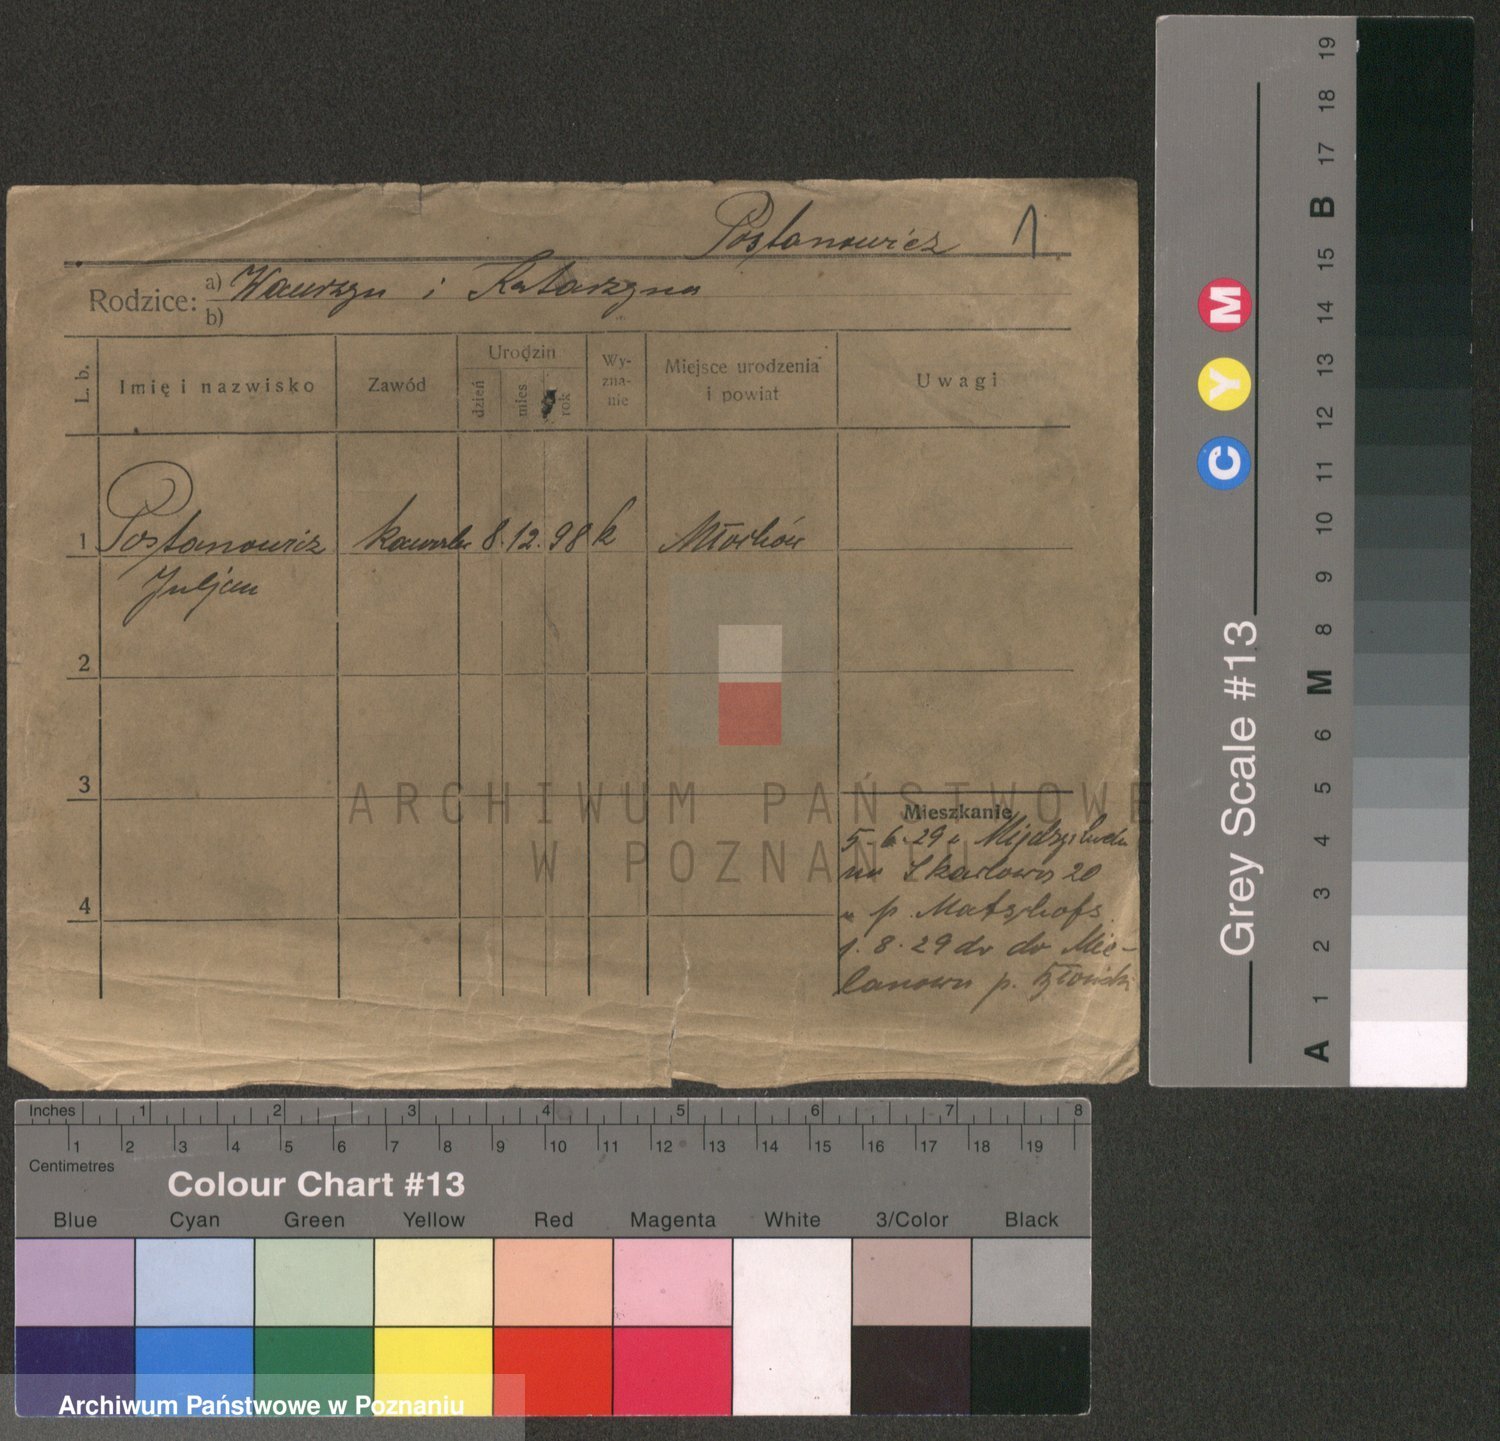 Postanowicz 1
Rodzice: a) Wawrzyn i Katarzyna
b)
L. b. Imię i nazwisko Zawód Urodzin dzień mies rok Wy-zna-nie Miejsce urodzenia i powiat Uwagi
1 Postanowicz 8. 12. 98 k Młochów
Juljan
2
3
4
Mieszkanie
5. 6. 29 z
20
p.
1. 8. 29 do Mie-
lanowa p.
ARCHIWUM PAŃSTWOWE
W POZNANIU
Grey Scale #13
C Y M
A 1 2 3 4 5 6 M 8 9 10 11 12 13 14 15 B 17 18 19
Inches 1 2 3 4 5 6 7 8
1 2 3 4 5 6 7 8 9 10 11 12 13 14 15 16 17 18 19
Centimetres
Colour Chart #13
Blue Cyan Green Yellow Red Magenta White 3/Color Black
Archiwum Państwowe w Poznaniu